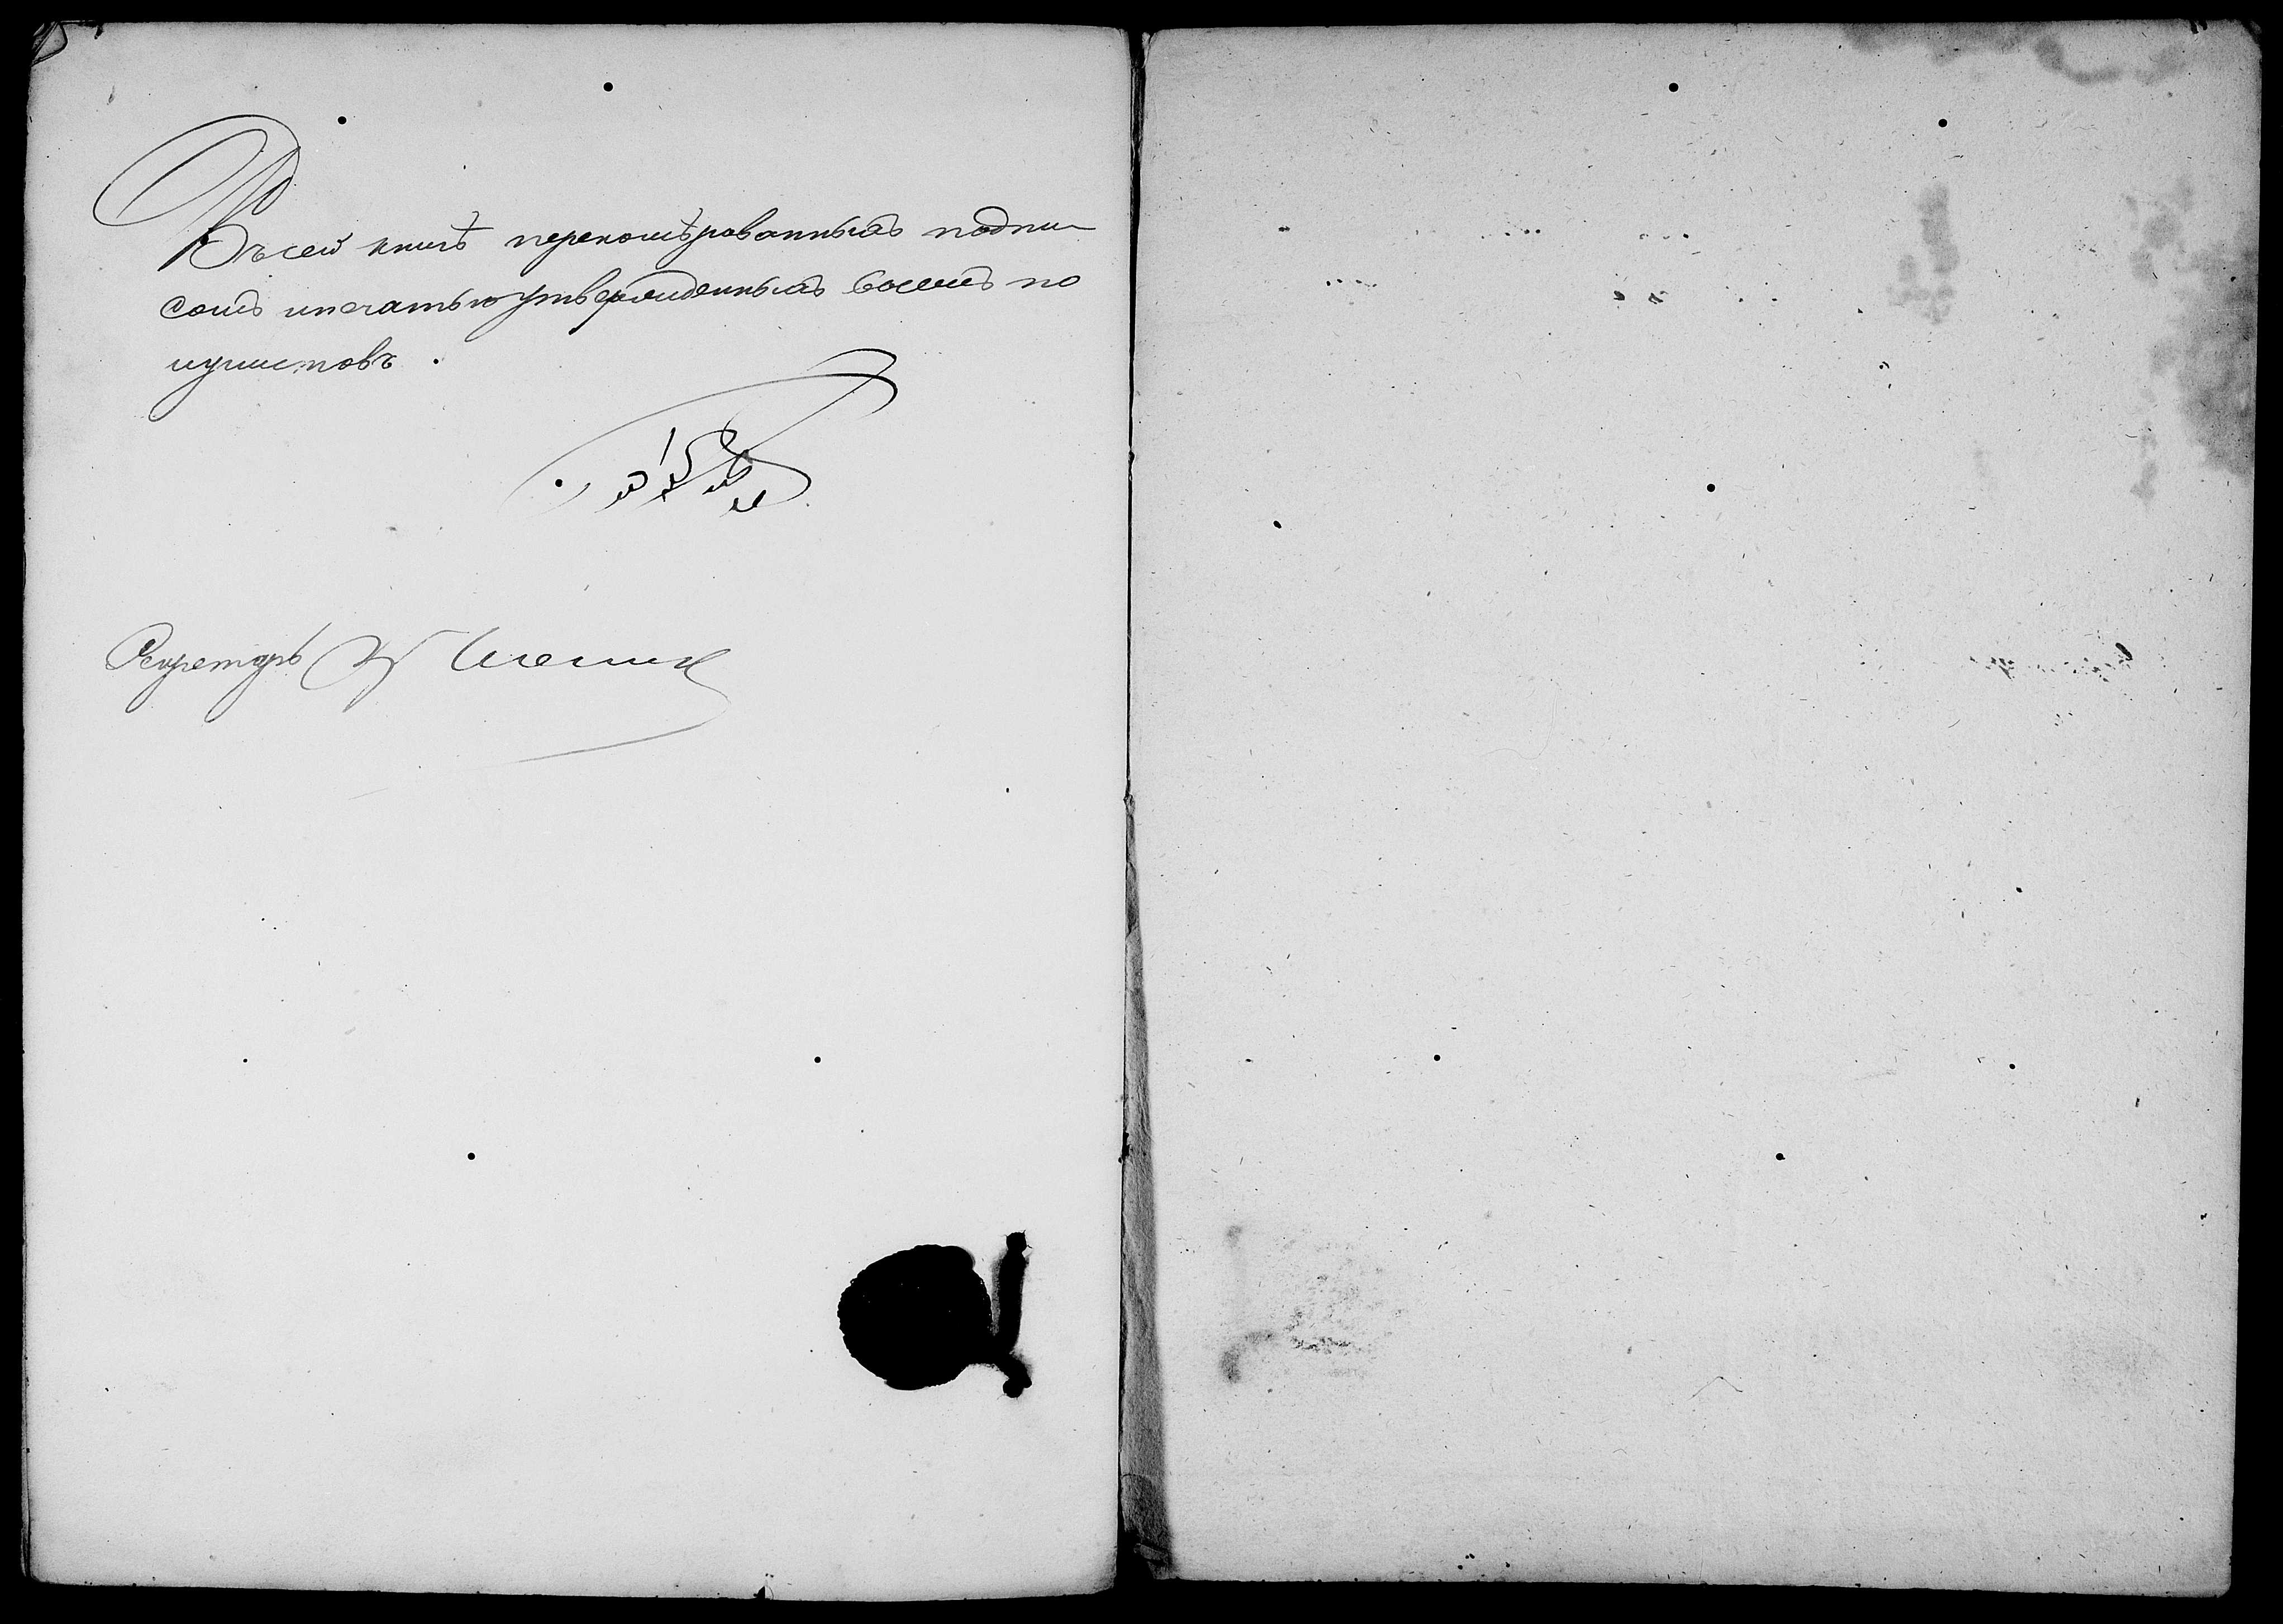 Въ сей книгѣ переномѣрованныхъ подпи
сомъ и печатью утвержденныхъ восемь по
лулистовъ.
Секретарь